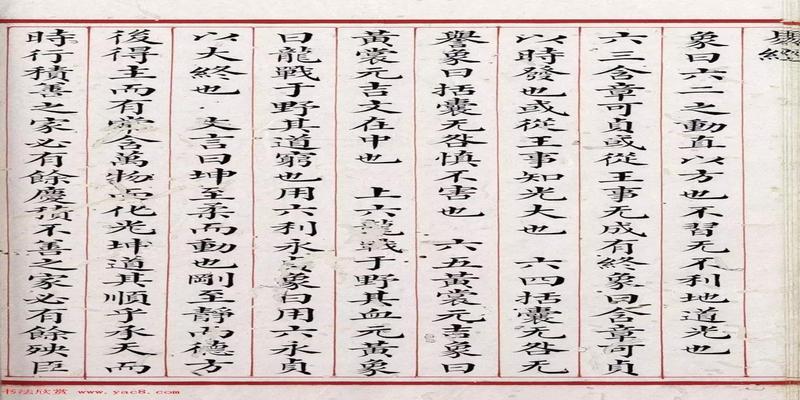 經
象曰六二之動直以方也不習无不利地道光也
六三含章可貞或從王事无成有終象曰含章可貞
以時發也或從王事知光大也 六四括囊无咎无
譽象曰括囊无咎慎不害也 六五黃裳元吉象曰
黃裳元吉文在中也 上六龍戰于野其血元黃象
曰龍戰于野其道窮也用六利永象曰用六永貞
以大終也 文言曰坤至柔而動也剛至靜而德方
後得主而有常含萬物而化光坤道其順乎承天而
時行積善之家必有餘慶積不善之家必有餘殃臣
书法欣赏 www.yac8.com